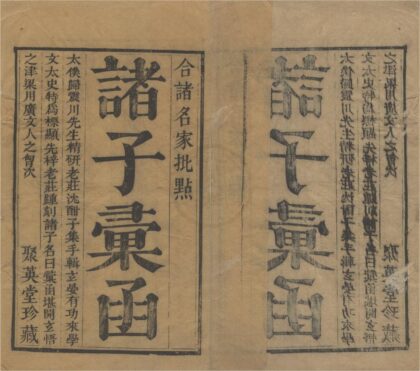 合諸名家批點
諸子彙函
太僕歸震川先生精研老莊沈酣子集手輯玄晏有功來學
文太史特為標顯先梓老莊踵刻諸子名曰彙函堪開玄悟
之津梁用廣文人之會次
聚英堂珍藏